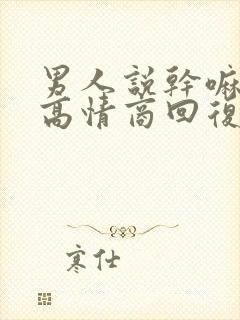 男人説幹嘛
高情商回復
寒仕